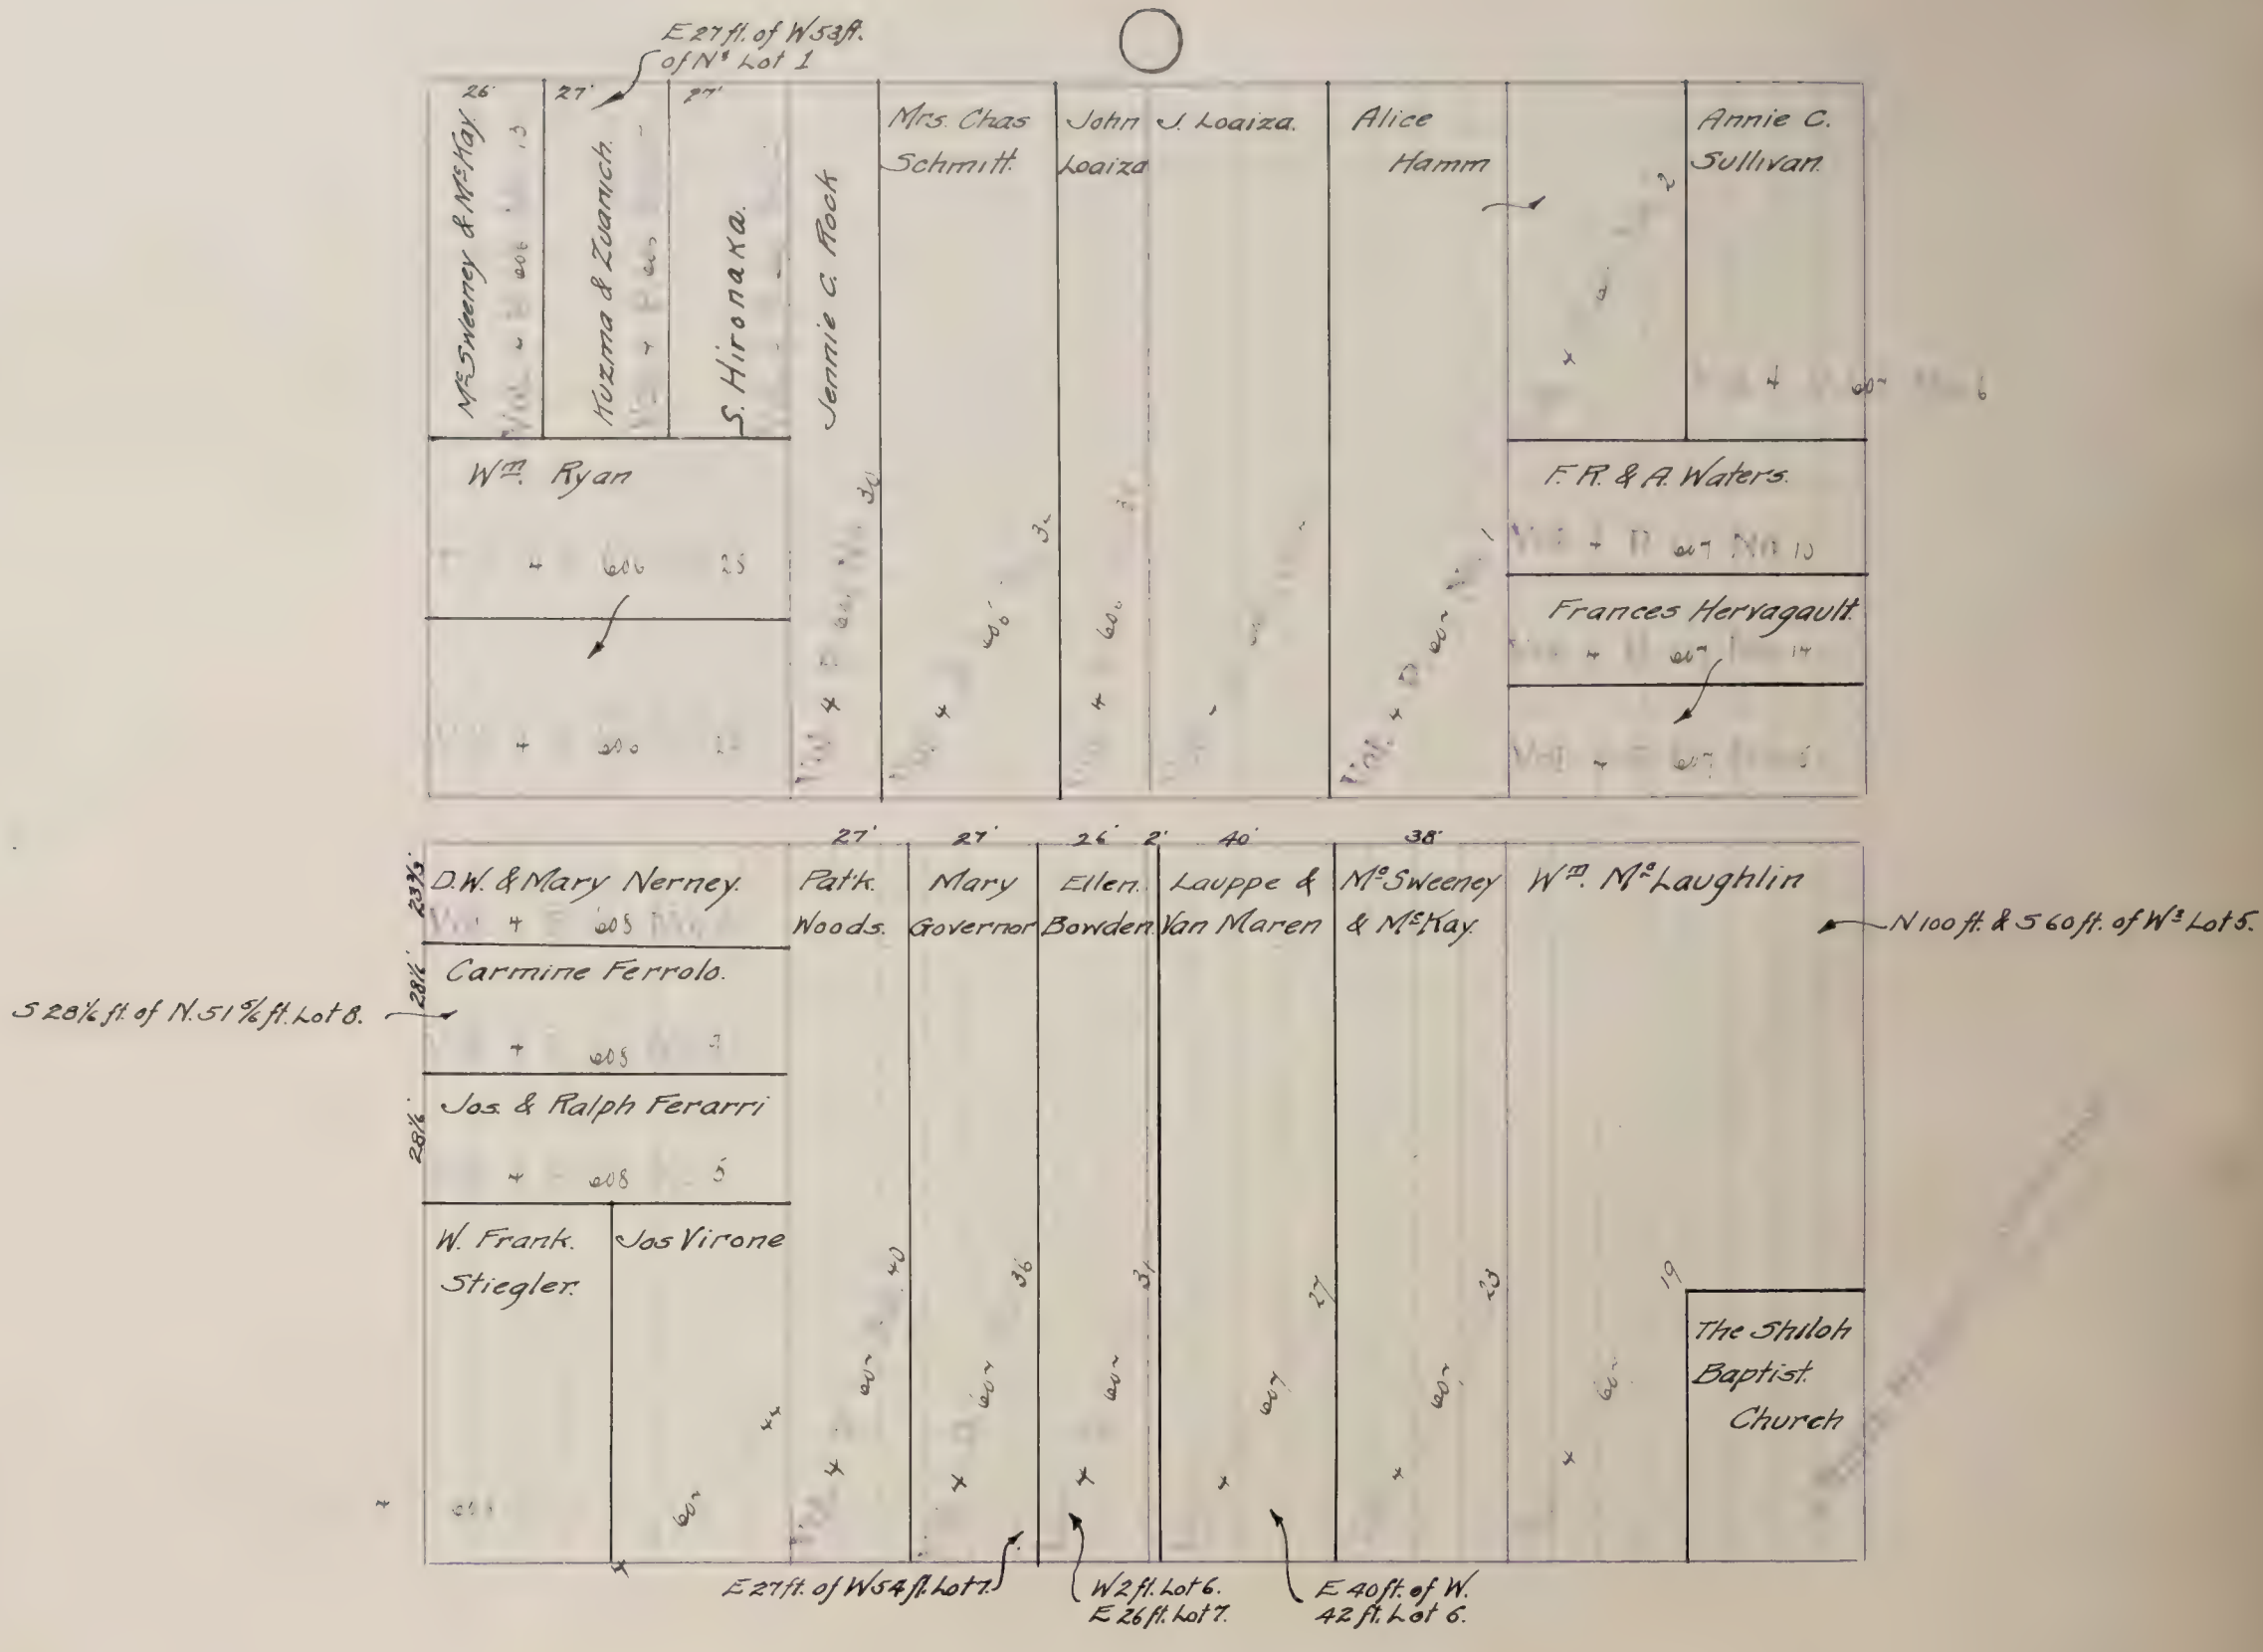 E 27 ft. of W 53 ft.
of N½ Lot 1
26'
27'
27'
McSweeney & McKay.
Kuzma & Zuanich.
S. Hironaka.
Jennie C. Rock
Mrs. Chas
Schmitt.
John
Loaiza
J. Loaiza.
Alice
Hamm
Annie C.
Sullivan.
Wm. Ryan
4 606 25
4 606
F. R. & A. Waters.
Vol 4 P 607 No 10
Frances Hervagault.
4 607 14
Vol 4 607
Vol. 4 P 606 No 30
4 606 32
4 606
Vol. 4 P 607 No 1
4 607 6
2
27' 27' 26' 2' 40' 38'
23⅔'
D.W. & Mary Nerney.
Vol 4 608
28⅙'
Carmine Ferrolo.
S 28⅙ ft. of N. 51⅚ ft. Lot 8.
4 608
28⅙'
Jos. & Ralph Ferarri
4 608 5
W. Frank.
Stiegler.
Jos Virone
4 607 44
Pat'k.
Woods.
Vol. 4 607 40
Mary
Governor
4 607 36
Ellen.
Bowden
4 607 31
Lauppe &
Van Maren
4 607 27
McSweeney
& McKay.
4 607 23
Wm. McLaughlin
4 607 19
N 100 ft. & S 60 ft. of W½ Lot 5.
The Shiloh
Baptist.
Church
E 27 ft. of W 54 ft. Lot 7.
W 2 ft. Lot 6.
E 26 ft. Lot 7.
E 40 ft. of W.
42 ft. Lot 6.